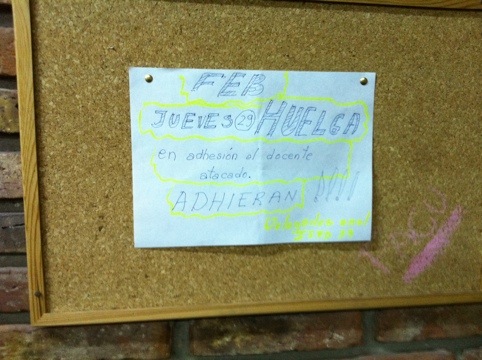 FEB
JUEVES 29 HUELGA
en adhesión al docente
atacado.
ADHIERAN !!!!